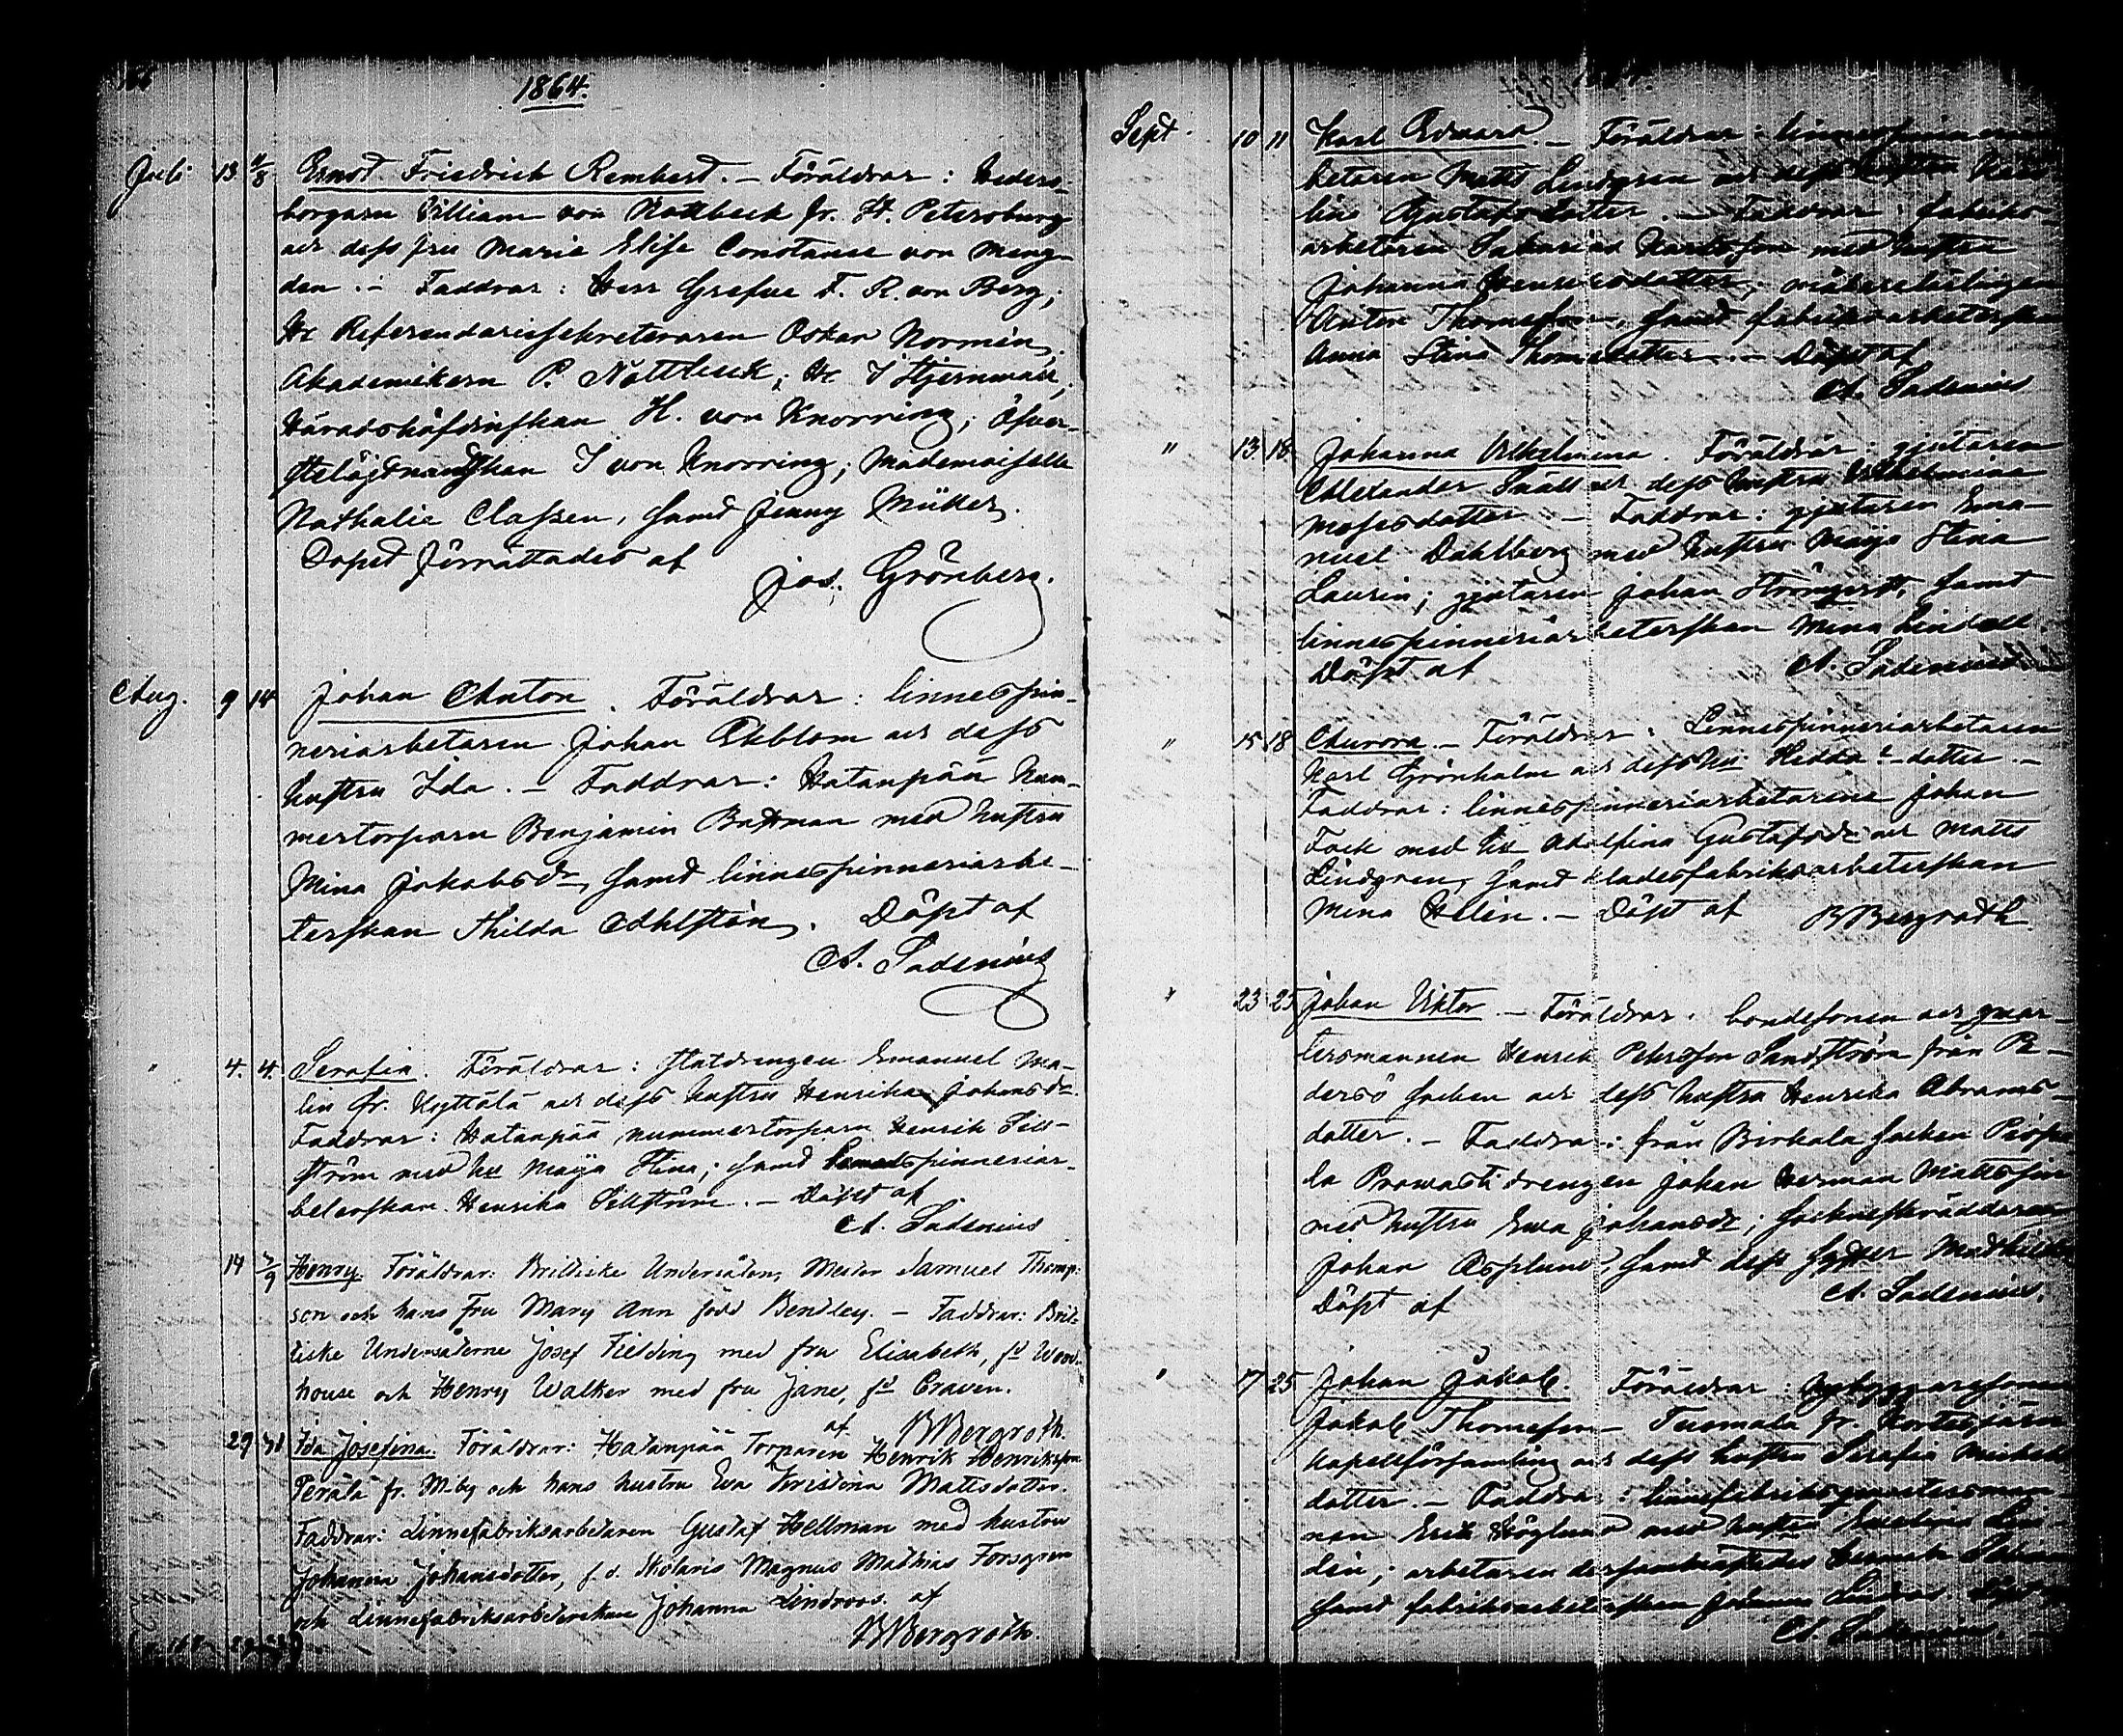 1864.
Juli 13 4/8 Ernst Friedrich Rembert. — Föräldrar: Heders-
borgaren William von Nottbeck fr. St. Petersburg
och dess fru Marie Elise Constance von Meng-
den. — Faddrar: Herr Grefve F. R. von Berg;
Hr Referendariesekreteraren Oskar Normén,
Akademikern P. Nottbeck; Hr I Stjernvall,
Häradshöfdinskan H. von Knorring; Öfver-
stelöjtnantskan I von Knorring; Mademoiselle
Nathalie Classen, samt Jenny Müller.
Dopet förrättades af
Jos. Grönberg.
Aug. 9 14 Johan Anton. Föräldrar: linnespin-
neriarbetaren Johan Ekblom och dess
hustru Ida. — Faddrar: Hatanpää num-
mertorparn Benjamin Battman med hustru
Mina Jakobsdr, samt linnespinneriarbe-
terskan Thilda Ahlstén. Döpt af
A. Sadenius
" 4. 4. Serafia. Föräldrar: statdrengen Emanuel Ma-
lin fr. Kyttälä och dess hustru Henrika Johansdr.
Faddrar: Hatanpää nummertorparn Henrik Sill-
ström med hu Maija Stina; samt spinneriar-
beterskan Henrika Sillström. — Döpt af
A. Sadenius
14 /9 Henry. Föräldrar: Brittiske Undersåten, Mester Samuel Thomp-
son och hans fru Mary Ann född Bendley. — Faddrar: Brit-
tiske Undersåterne Josef Fielding med fru Elisabeth, fd Wood-
house och Henry Walker med fru Jane, fd Craven.
af BBergroth.
29 Ida Josefina. Föräldrar: Hatanpää Torparen Henrik Henriksson
Perälä fr. M.by och hans hustru Eva Kristina Mattsdotter.
Faddrar: Linnefabriksarbetaren Gustaf Hellman med hustru
Johanna Johansdotter, f.d. Skolaris Magnus Mathias Forsgren
och Linnefabriksarbeterskan Johanna Lindroos. af
BBergroth.
Sept. 10 11 Karl Edvard. — Föräldrar:
betaren Matts Lindgren och dess hustru Karo-
lina Gustafsdotter. — Faddrar: fabriks-
arbetaren Sakarias Karlsson med hustru
Johanna Henriksdotter, målarelärlingen
Anton Thomesson, samt fabriksarbeterskan
Anna Stina Thomedotter. — Döpt af
A. Sadenius
" 13 18 Johanna Vilhelmina. Föräldrar: gjutaren
Alexander Snäll och dess hustru Vilhelmina
Mosesdotter — Faddrar: gjutaren Ema-
nuel Dahlberg med hustru Maija Stina
Laurin; gjutaren Johan Strömqvist, samt
linnespinneriarbeterskan Mina Lindell.
Döpt af A. Sadenius
" 15 18 Aurora. — Föräldrar: Linnespinneriarbetaren
Karl Grönholm och dess hu Hedda ?-dotter. —
Faddrar: linnespinneriarbetarene Johan
Fock med hu Adolfina Gustafsdr och Matts
Lindgren, samt kladesfabriksarbeterskan
Mina Helin. — Döpt af BBergroth
" 23 25 Johan Viktor — Föräldrar: bondesonen och qvar-
tersmannen Henrik Petersson Sandström från Pe-
dersö socken och dess hustru Henrika Abrams-
dotter. — Faddrar: från Birkala socken Pispa-
la Prowasti drengen Johan Herman Mattsson
med hustru Eva Johansdr; sockneskräddaren
Johan Asplund, samt dess syster Mathilda
Döpt af A. Sadenius.
" 17 25 Johan Jakob. Föräldrar: nybyggaresonen
Jakob Thomesson Tuomala fr. Kortesjärvi
kapellförsamling och dess hustru Serafia Mickels-
dotter. — Faddrar: linnefabriksqvartersman-
nen Erik Höglund med hustru Lin-
dén; arbetaren
samt fabriksarbeterskan Lindros. Döpt af
A. Sadenius. —